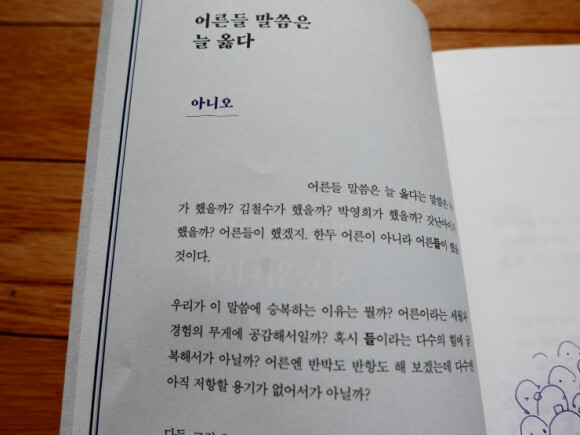 어른들 말씀은
늘 옳다
아니오
어른들 말씀은 늘 옳다는 말씀은
가 했을까? 김철수가 했을까? 박영희가 했을까? 갓난아이가
했을까? 어른들이 했겠지. 한두 어른이 아니라 어른들이 했을
것이다.
우리가 이 말씀에 승복하는 이유는 뭘까? 어른이라는 세월과
경험의 무게에 공감해서일까? 혹시 들이라는 다수의 힘에 굴
복해서가 아닐까? 어른엔 반박도 반항도 해 보겠는데 다수엔
아직 저항할 용기가 없어서가 아닐까?